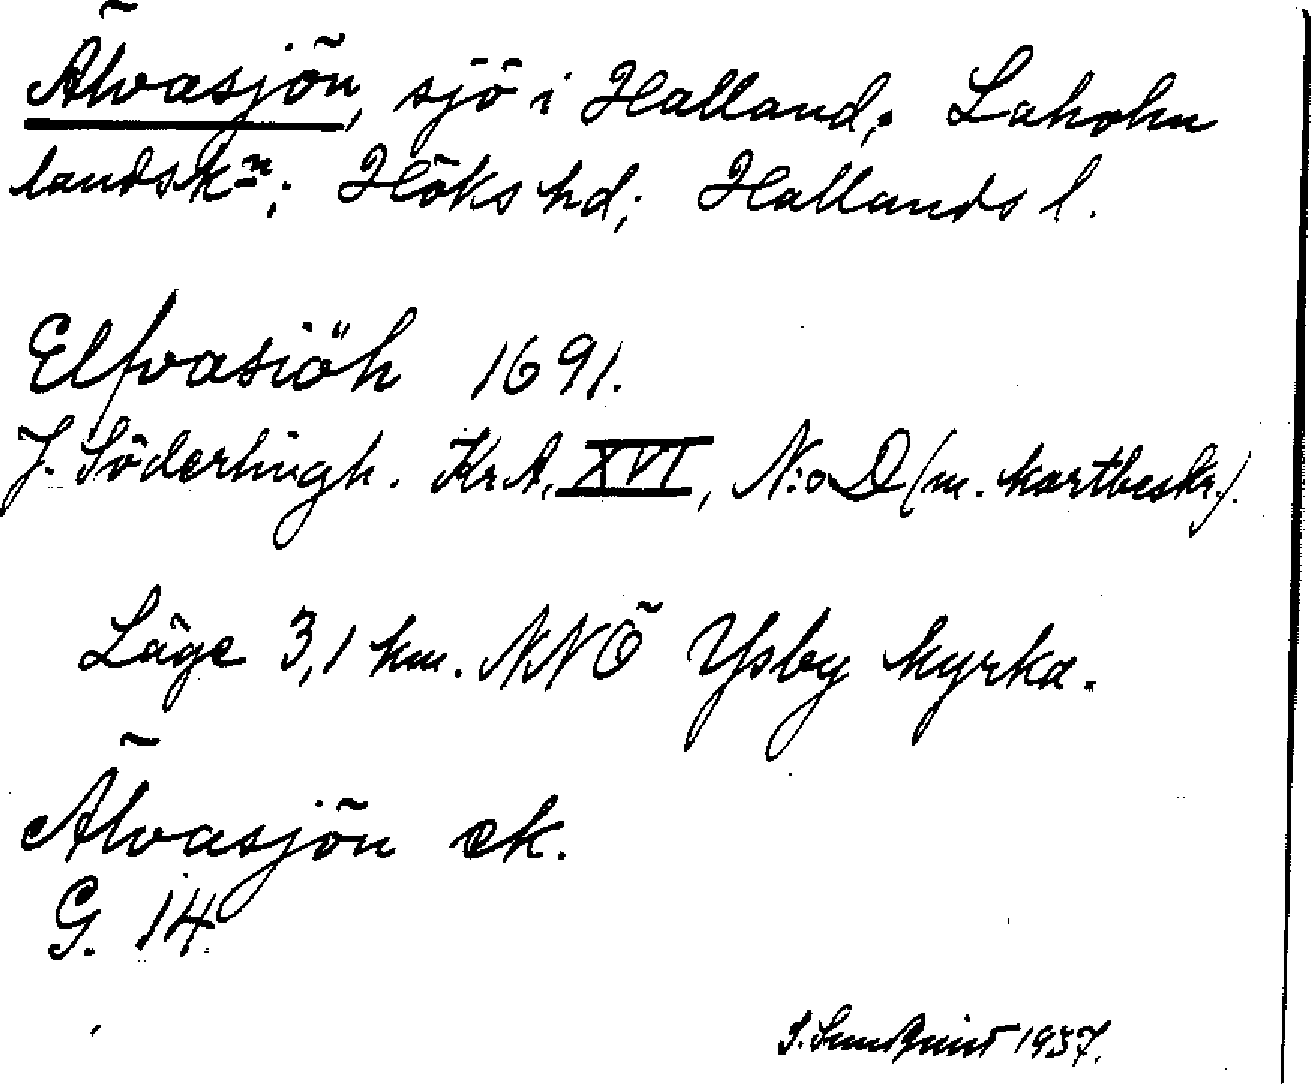 Älvasjön, sjö i Halland; Laholm
landskn; Höks hd; Hallands l.
Elfvasiöh 1691.
J. Söderlingh. Kr.A. XVI, N:o D (m. kartbeskr.).
Läge 3,1 km. NNÖ Ysby kyrka.
Älvasjön ek.
G. 14.
S. Sundquist 1937.